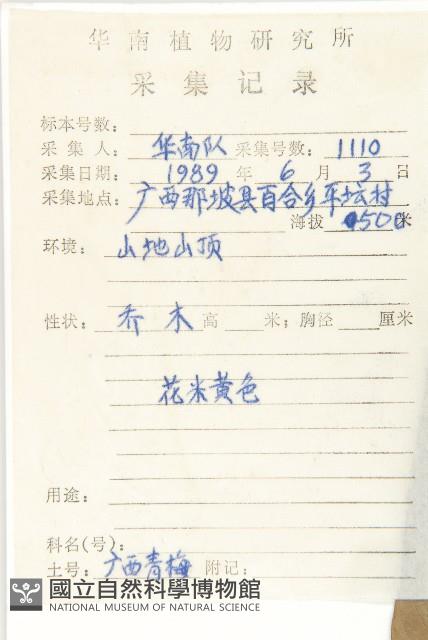 华南植物研究所
采集记录
标本号数：
采集人：华南队 采集号数：1110
采集日期：1989年6月3日
采集地点：广西那坡县百合乡平坛村
海拔 500米
环境：山地山顶
性状：乔木 高 米；胸径 厘米
花米黄色
用途：
科名(号)：
土号：广西青梅 附记：
國立自然科學博物館
NATIONAL MUSEUM OF NATURAL SCIENCE